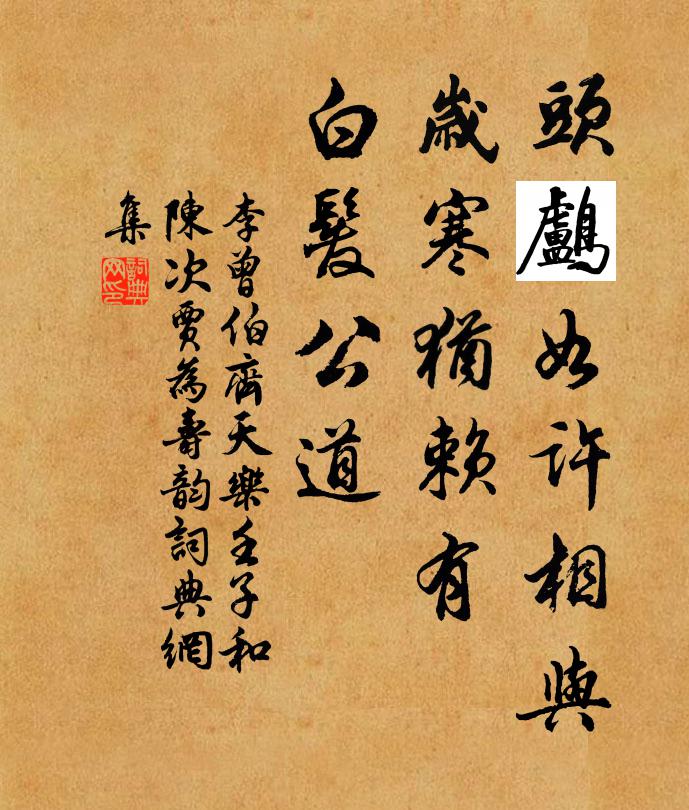 頭鸕如許相與
歲寒猶賴有
白髮公道
李曾伯齊天樂壬子和
陳次賈為壽韵詞典網
集
詞典
网印